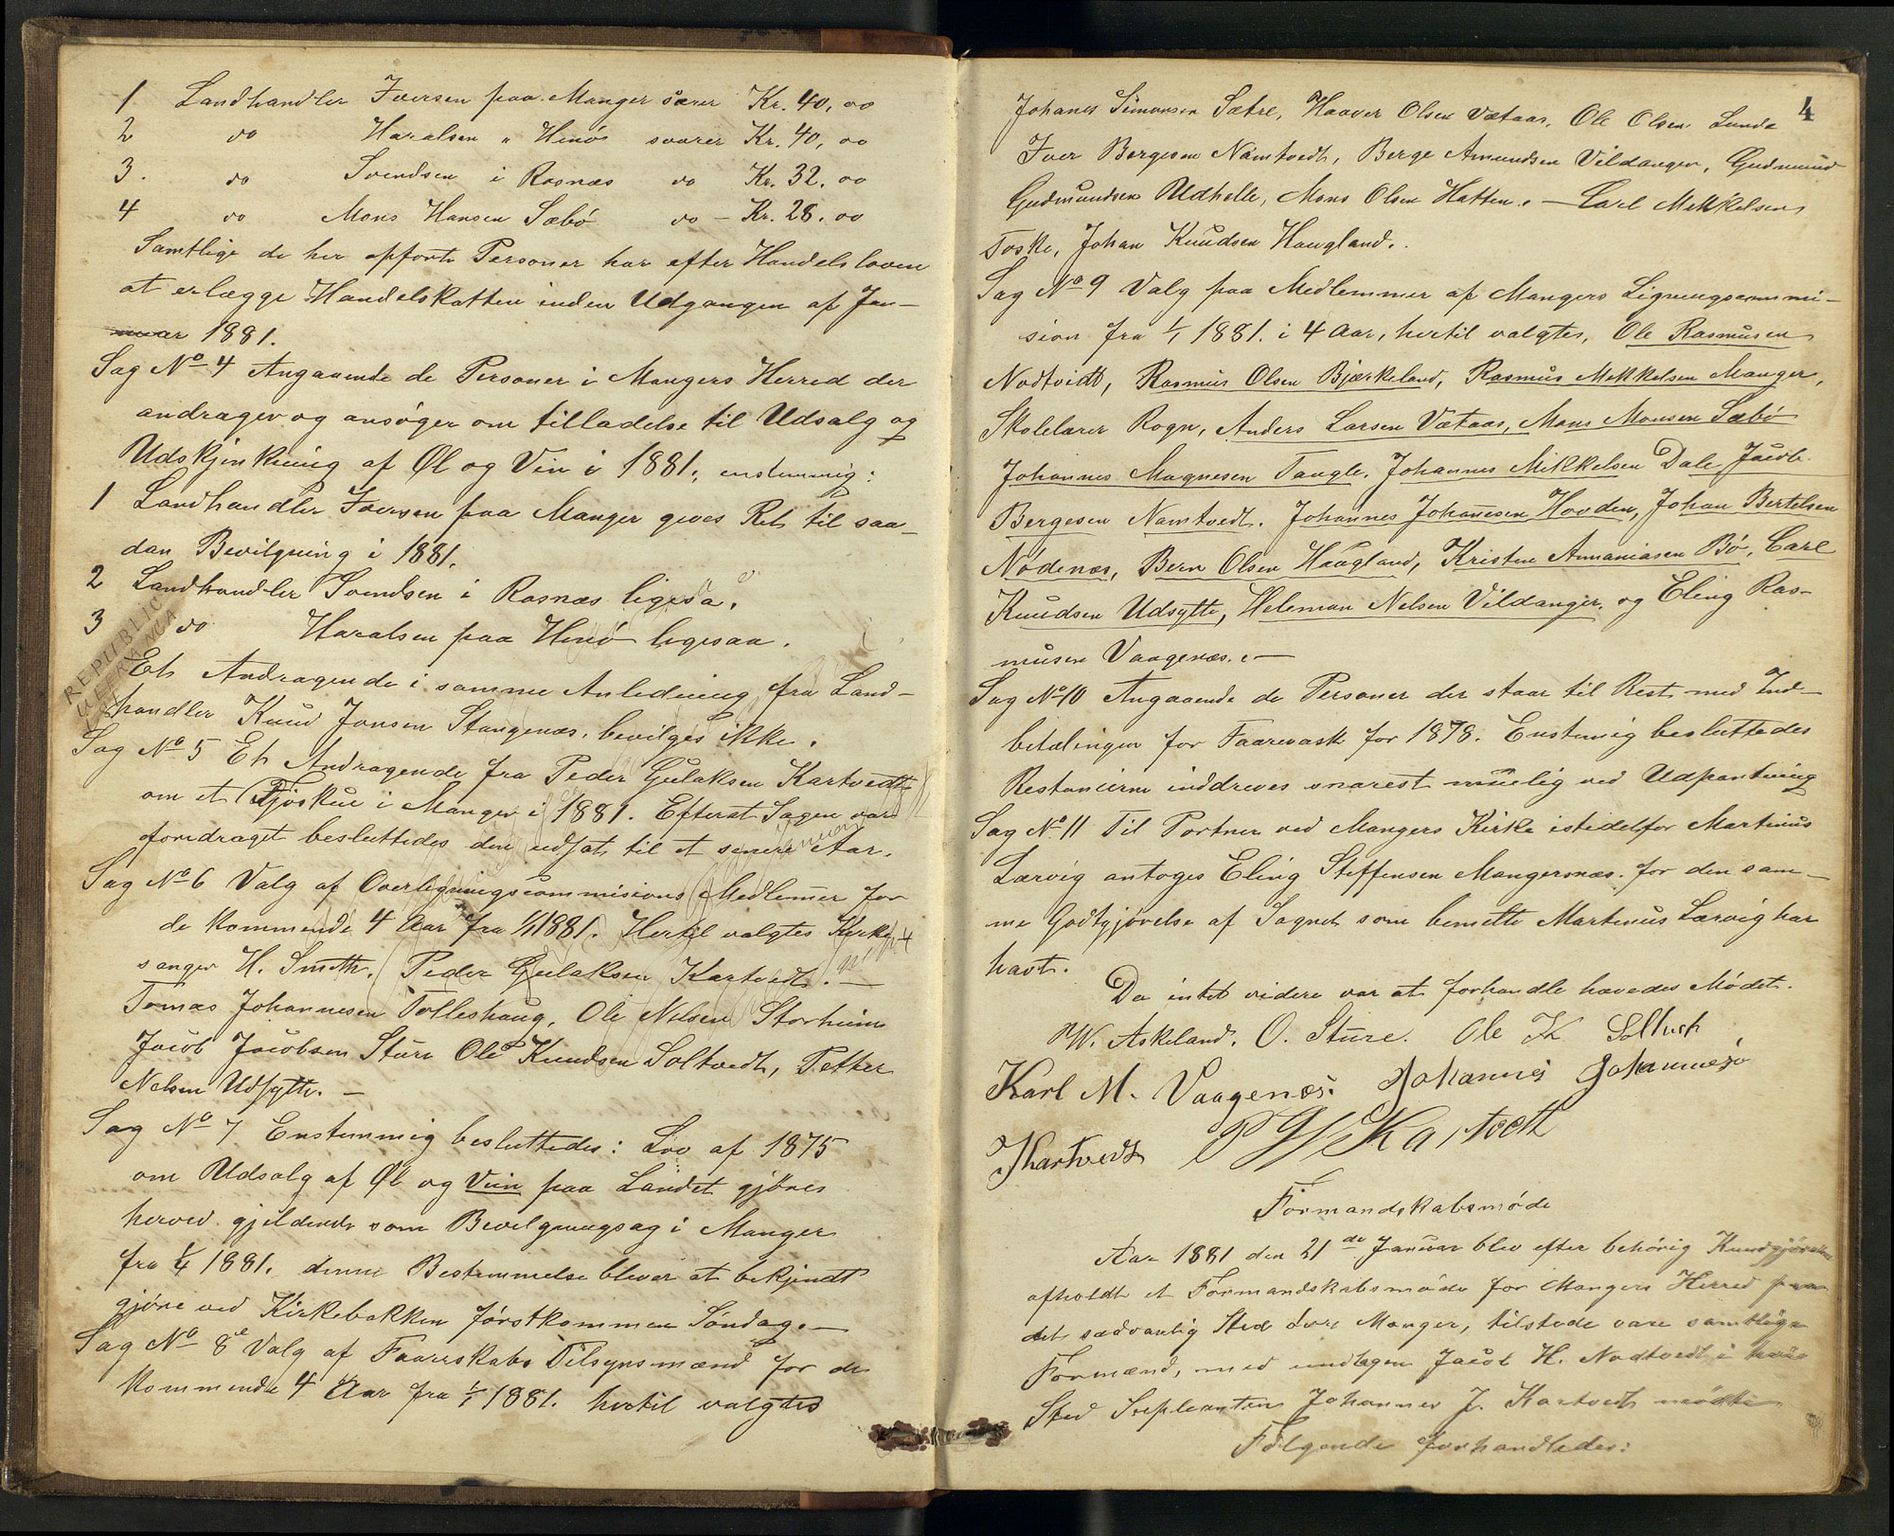 1 Landhandler Iversen paa Manger svarer Kr. 40,00
2 do Haralsen " Hernö svarer Kr. 40,00
3. do Svendsen i Rosnæs do Kr. 32.00
4 do Mons Hansen Sæbö do – Kr. 28.00
Samtlige de her opförte Personer har efter Handelsloven
at erlægge Handelskatten inden Udgangen af Jan–
uar 1881.
Sag No 4 Angaaende de Personer i Mangers Herred der
andrager og ansöger om tilladelse til Udsalg og
Udskjenkning af Øl og Vin i 1881., enstemmig:
1 Landhandler Iversen paa Manger gives Ret til saa–
dan Bevilgning i 1881.
2 Landhandler Svendsen i Rosnæs ligesaa.
3 do Haralsen paa Hernö ligesaa.
Et Andragende i samme Anledning fra Land–
handler Knud Jonsen Stangenæs, bevilges ikke.
Sag No 5 Et Andragende fra Peder Gulaksen Kartvedt
om et i Manger i 1881. Efterat Sagen var
foredraget besluttedes den udsat til et senere Aar.
Sag No 6 Valg af Overligningscommisions Medlemer for
de kommende 4 Aar fra 1/1 1881. Hertil valgtes Kirke
sanger H. Smith. Peder Gulaksen Kartvedt. –
Tomas Johannesen Tolleshaug, Ole Nelsen Storheim
Jacob Jacobsen Sture Ole Knudsen Soltvedt, Petter
Nelsen Udsytte. –
Sag No 7 Enstemmig besluttedes: Lov af 1875
om Udsalg af Øl og Viin paa Landet gjöres
herved gjeldende som Bevilgningsag i Manger
fra 1/1 1881. denne Bestemmelse bliver at bekjendt
gjöre ved Kirkebakken förstkommen Söndag. –
Sag No 8 Valg af Faareskabs Tilsynsmænd for de
kommende 4 Aar fra 1/1 1881. hertil valgtes
4
Johanes Simonsen Sætre, Haaver Olsen Vætaas, Ole Olsen Lunde
Iver Börgesen Namtvedt, Berge Amundsen Vildanger, Gudmund
Gudmundsen Udhelle, Mons Olsen Hatten. – Carl Mekkelsen
Toske, Johan Knudsen Haugland.
Sag No 9 Valg paa Medlemmer af Mangers Ligningscommi–
sion fra 1/1 1881. i 4 Aar, hertil valgtes, Ole Rasmusen
Nodtvidt, Rasmus Olsen Bjærkeland, Rasmus Mekkelsen Manger,
Skolelærer Rogn, Anders Larsen Vætaas, Mons Monsen Sæbö
Johannes Magnesen Tangle, Johannes Mikkelsen Dale, Jacob
Bergesen Namtvedt. Johannes Johanesen Hovden, Johan Bertelsen
Nödenæs, Bern Olsen Haagland, Kristen Annaniasen Bö, Carl
Knudsen Udsytte, Heleman Nelsen Vildanger, og Eling Ras–
musen Vaagenæs. –
Sag No 10 Angaaende de Personer der staar til Rest med Ind–
betalingen for Faarevask for 1878. Enstemig besluttedes
Restancerne inddreves snarest muelig ved Udpantning
Sag No 11 Til Portner ved Mangers Kirke istedetfor Martinus
Lærvig antoges Eling Steffensen Mangersnæs. for den sam–
me Godtgjörelse af Sognet som bemelte Martinus Lærvig har
havt.
Da intet videre var at forhandle hævedes Mödet.
W. Askeland. O. Sture. Ole K Soltvet
Karl M. Vaagenæs. Johannes Johannesö
JKartvedt P G Kartvedt
Formandskabsmöde
Aar 1881 den 21de Januar blev efter behörig Kundgjörelse
afholdt et Formandskabsmöde for Mangers Herred paa
det sædvanlig Sted övre Manger, tilstede vare samtlige
Formænd, med undtagen Jacob H. Nodtvedt i hans
Sted Supleanten Johannes J. Kartvedt mödte
Fölgende forhandledes: